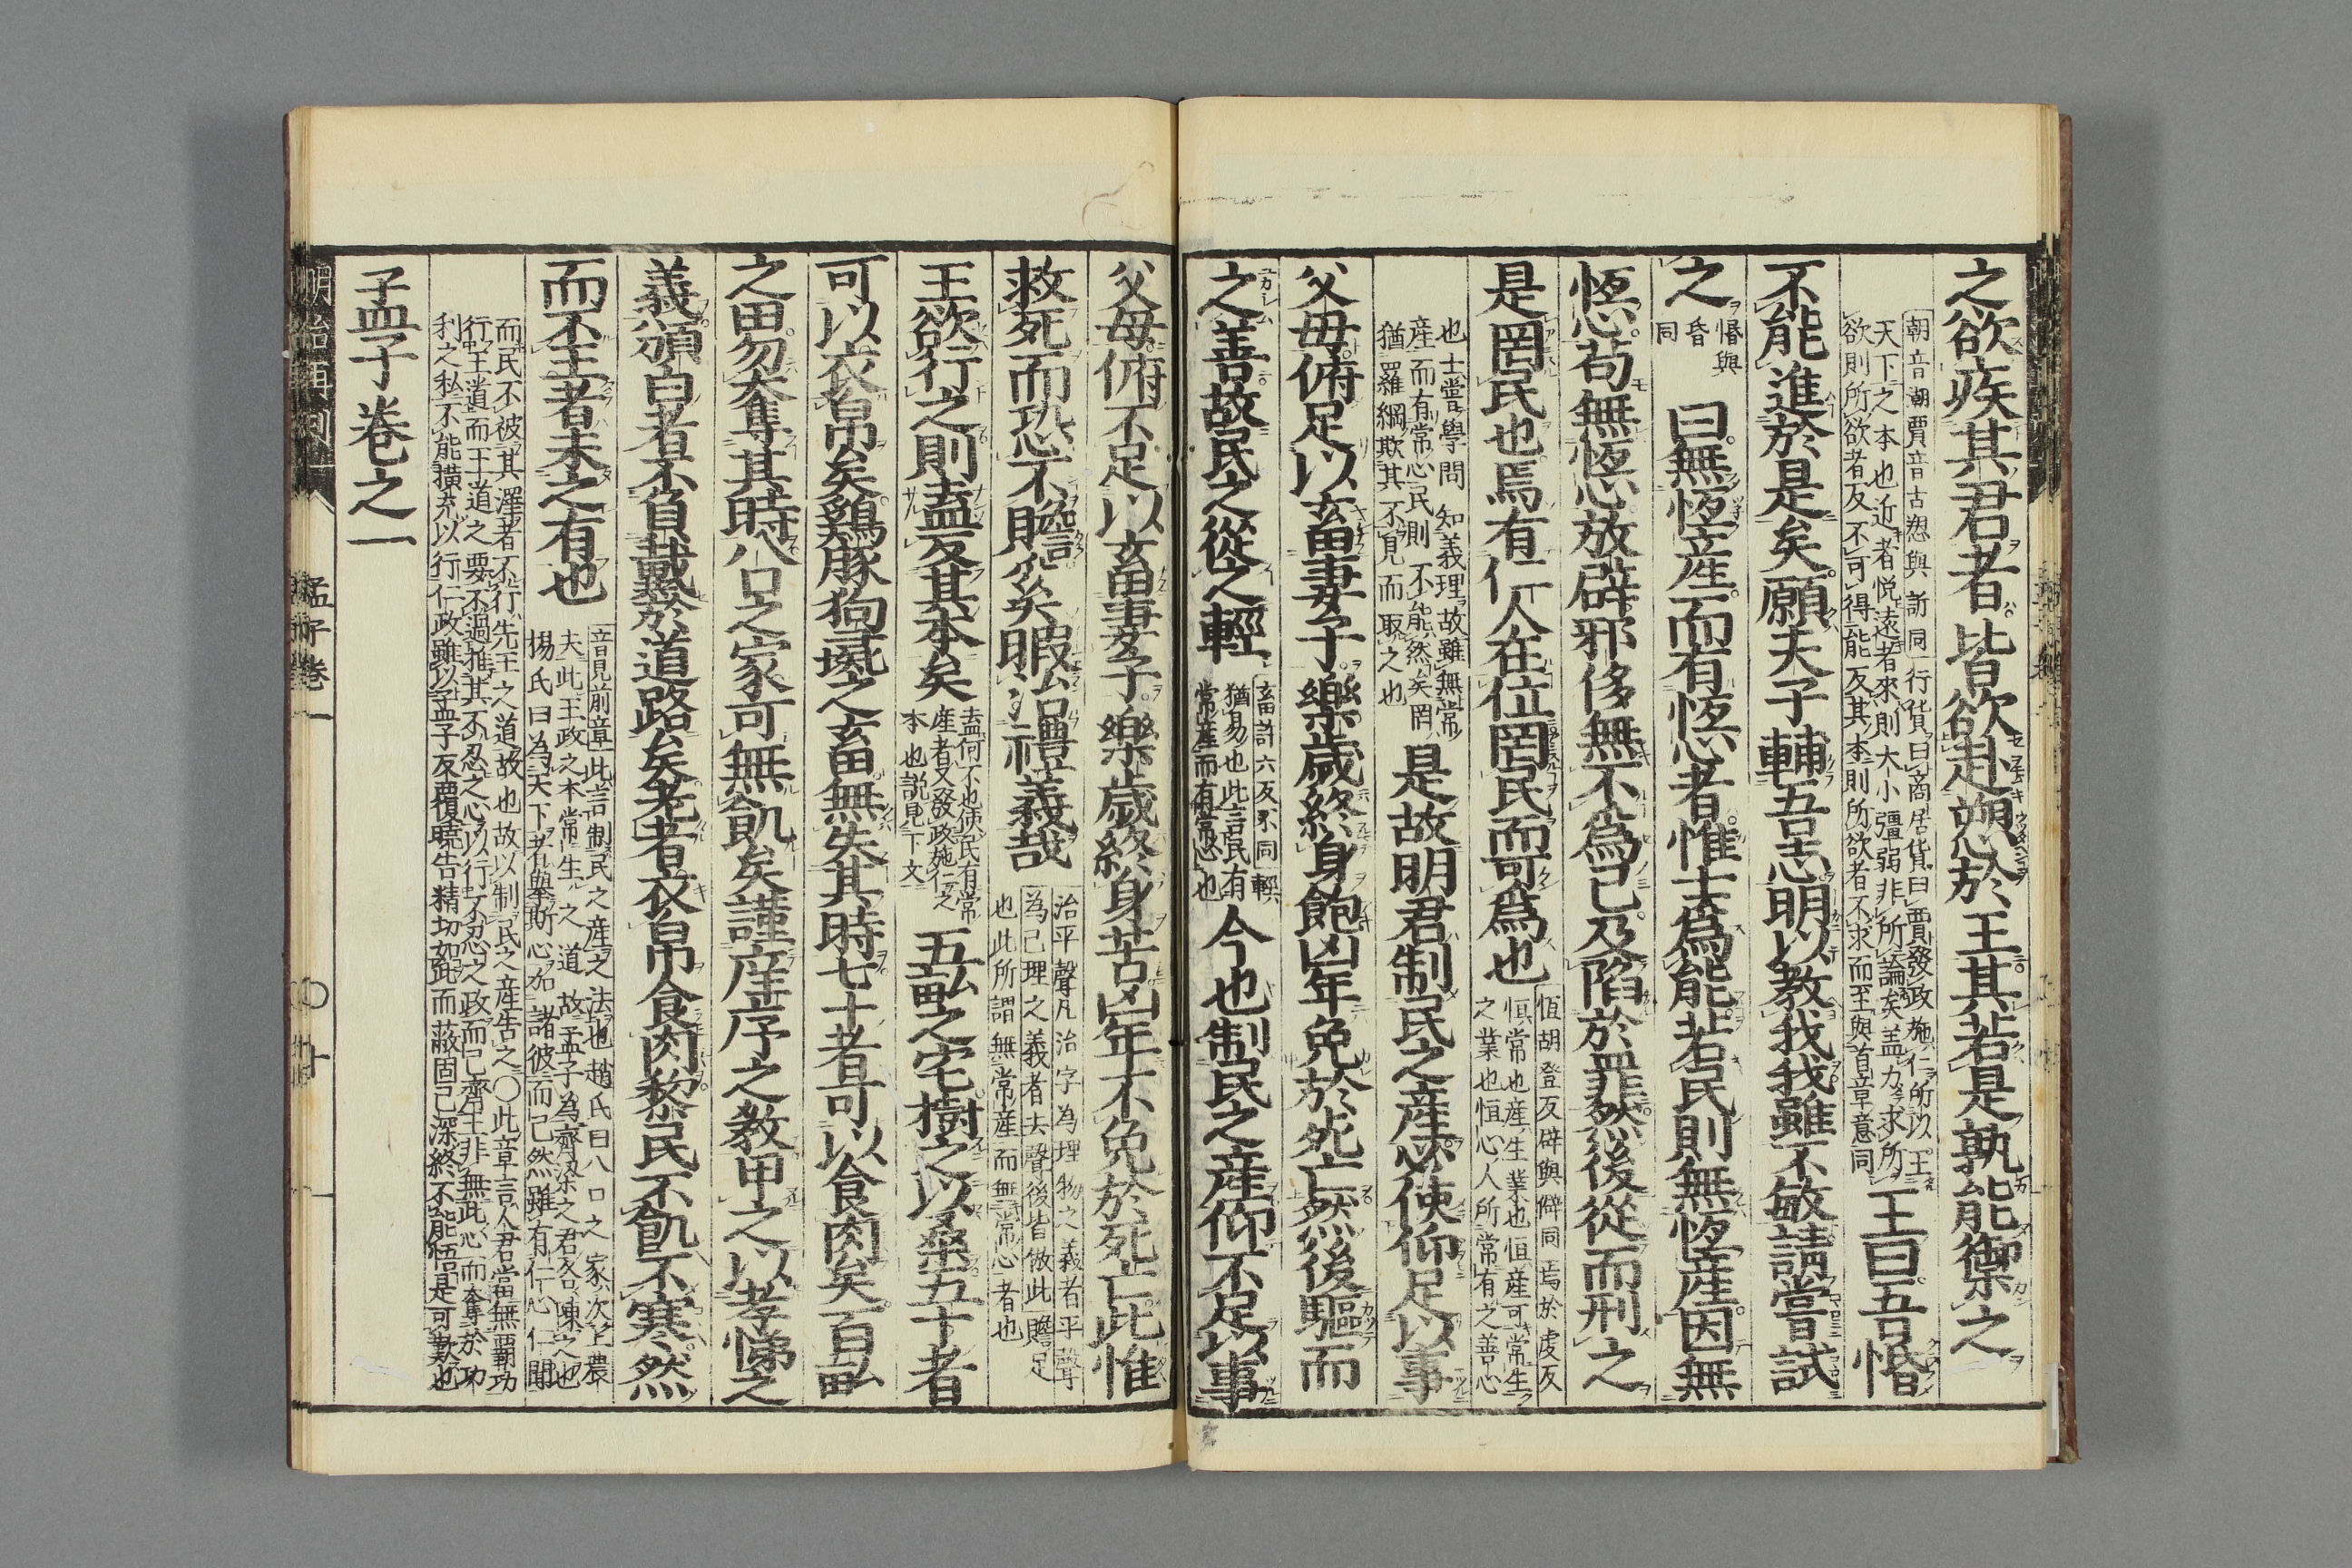 之欲疾其君者皆欲赴愬於王其若是孰能禦之
朝音潮賈音古愬與訴同行貨曰商居貨曰賈發政施仁所以王
天下之本也近者悅遠者來則大小彊弱非所論矣蓋力求所
欲則所欲者反不可得能反其本則所欲者不求而至與首章意同
王曰吾惛
不能進於是矣願夫子輔吾志明以教我我雖不敏請嘗試
之
惛與
昏
同
曰無恆産而有恆心者惟士爲能若民則無恆産因無
恆心苟無恆心放辟邪侈無不爲已及陷於罪然後從而刑之
是罔民也焉有仁人在位罔民而可爲也
恆胡登反辟與僻同焉於虔反
恆常也産生業也恆産可常生
之業也恆心人所常有之善心
也士嘗學問知義理故雖無常
産而有常心民則不能然矣罔
猶羅網欺其不見而取之也
是故明君制民之産必使仰足以事
父母俯足以畜妻子樂歲終身飽凶年免於死亡然後驅而
之善故民之從之輕
畜許六反下同輕
猶易也此言民有
常産而有常心也
今也制民之産仰不足以事
父母俯不足以畜妻子樂歲終身苦凶年不免於死亡此惟
救死而恐不贍奚暇治禮義哉
治平聲凡治字爲理物之義者平聲
爲己理之義者去聲後皆倣此贍足
也此所謂無常産而無常心者也
王欲行之則盍反其本矣
盍何不也使民有常
産者又發政施仁之
本也説見下文
五畝之宅樹之以桑五十者
可以衣帛矣鷄豚狗彘之畜無失其時七十者可以食肉矣百畝
之田勿奪其時八口之家可無飢矣謹庠序之教申之以孝悌之
義頒白者不負戴於道路矣老者衣帛食肉黎民不飢不寒然
而不王者未之有也
音見前章此言制民之産之法也趙氏曰八口之家次上農
夫此王政之本常生之道故孟子爲齊梁之君各陳之也
楊氏曰為天下者舉斯心加諸彼而已然雖有仁心仁聞
而民不被其澤者不行先王之道故也故以制民之産告之○此章言人君當無覇功
行王道而王道之要不過推其不忍之心以行不忍之政而已齊王非無此心而奪於功
利之私不能擴充以行仁政雖以孟子反覆曉告精切如此而蔽固已深終不能悟是可歎也
孟子卷之一
明治再刻
孟子卷一